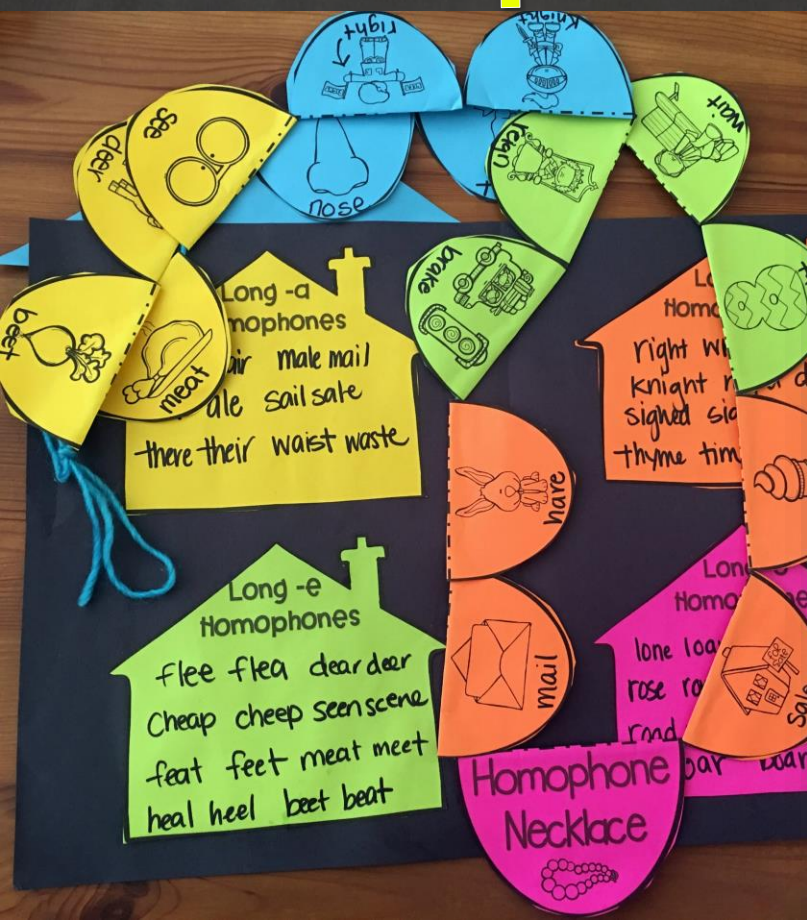 right
Knight
wait
see
deer
nose
reign
brake
beet
meat
Long -a
mophones
air male mail
ale sail sale
there their waist waste
right
Knight
signed
thyme
hare
mail
Long -e
Homophones
flee flea dear deer
Cheap cheep seen scene
feat feet meat meet
heal heel beet beat
Lon
Homo
lone
rose
road
boar
FOR
Sale
sale
Homophone
Necklace